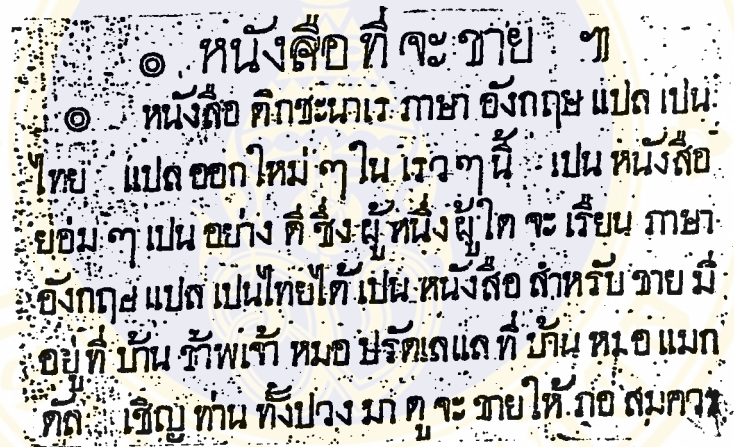 ๏ หนังสือ ที่ จะ ขาย ฯ
๏ หนังสือ ดิกชะนาเร ภาษา อังกฤษ แปล เปน
ไทย แปล ออก ใหม่ ๆ ใน เรว ๆ นี้ เปน หนังสือ
ย่อม ๆ เปน อย่าง ดี ซึ่ง ผู้ หนึ่ง ผู้ ใด จะ เรียน ภาษา
อังกฤษ แปล เปนไทยได้ เปน หนังสือ สำหรับ ขาย มี
อยู่ ที่ บ้าน ข้าพเจ้า หมอ ปรัดเลแล ที่ บ้าน หมอ แมก
ดัล เชิญ ท่าน ทั้งปวง มา ดู จะ ขายให้ ภอ สมควร